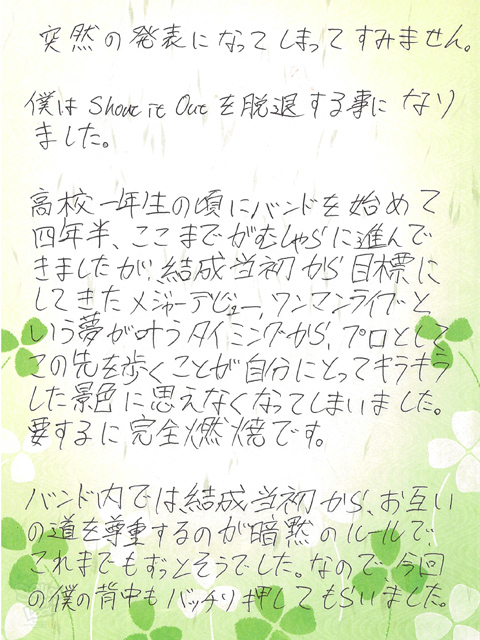 突然の発表になってしまってすみません。
僕は Shout it Out を脱退する事になり
ました。
高校一年生の頃にバンドを始めて
四年半、ここまでがむしゃらに進んで
きましたが、結成当初から目標に
してきたメジャーデビュー、ワンマンライブと
いう夢が叶うタイミングから、プロとして
この先を歩くことが自分にとってキラキラ
した景色に思えなくなってしまいました。
要するに完全燃焼です。
バンド内では結成当初から、お互い
の道を尊重するのが暗黙のルールで、
これまでもずっとそうでした。なので、今回
の僕の背中もバッチリ押してもらいました。